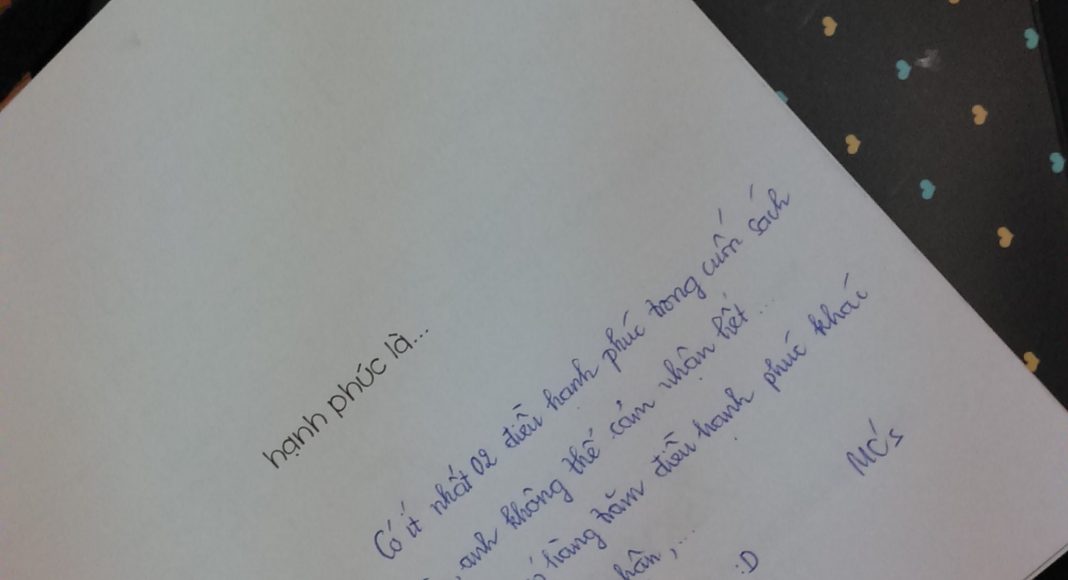 hạnh phúc là...
Có ít nhất 02 điều hạnh phúc trong cuốn sách
, anh không thể cảm nhận hết...
hàng trăm điều hạnh phúc khác
,...
:D
MC's